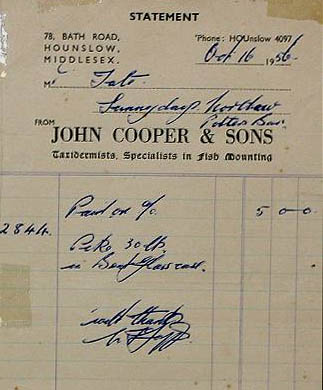 STATEMENT
78, BATH ROAD,
HOUNSLOW,
MIDDLESEX.
'Phone: HOUnslow 4097
Oct 16 1956
M Tate
Sunnydays Northaw
Potters Bar
FROM
JOHN COOPER & SONS
Taxidermists, Specialists in Fish Mounting
Paid on a/c 5 0 0
2844
Pike 30 lb.
in Bent Glass case.
with thanks